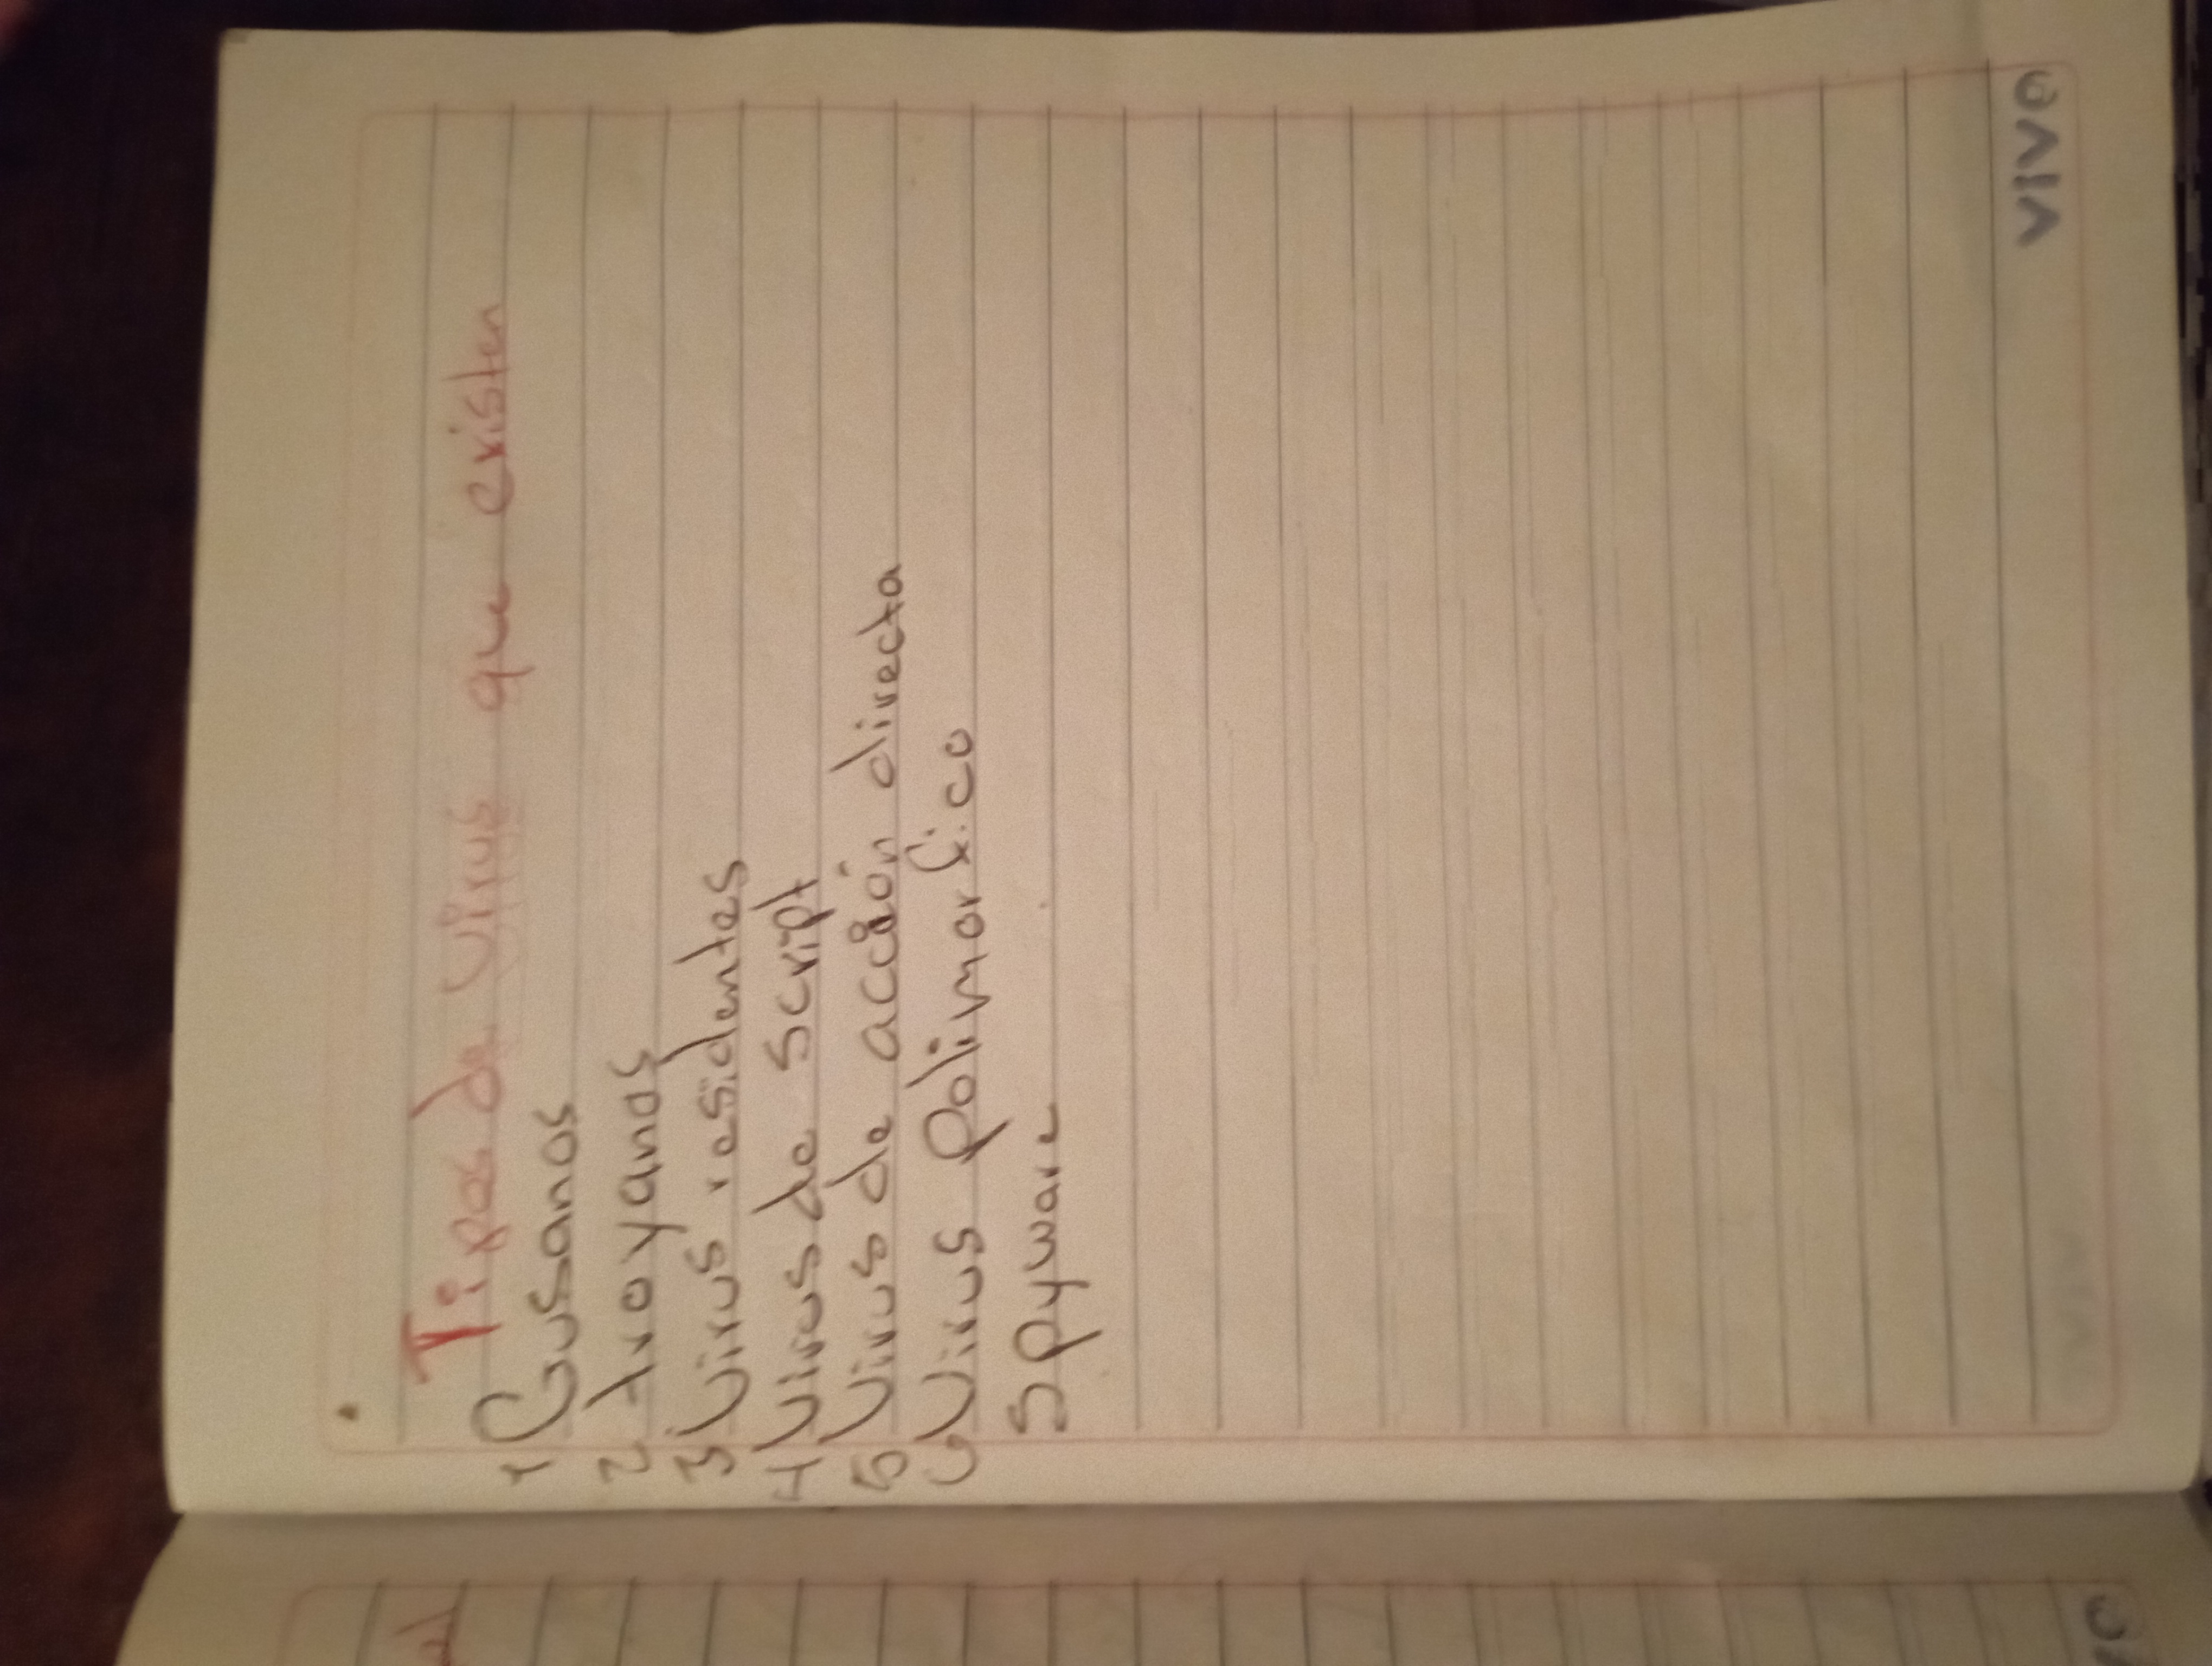 Tipos de Virus que existen
1 Gusanos
2 troyanos
3 Virus residentes
4 Virus de script
5 Virus de acción directa
6 Virus Polimorfico
Spyware